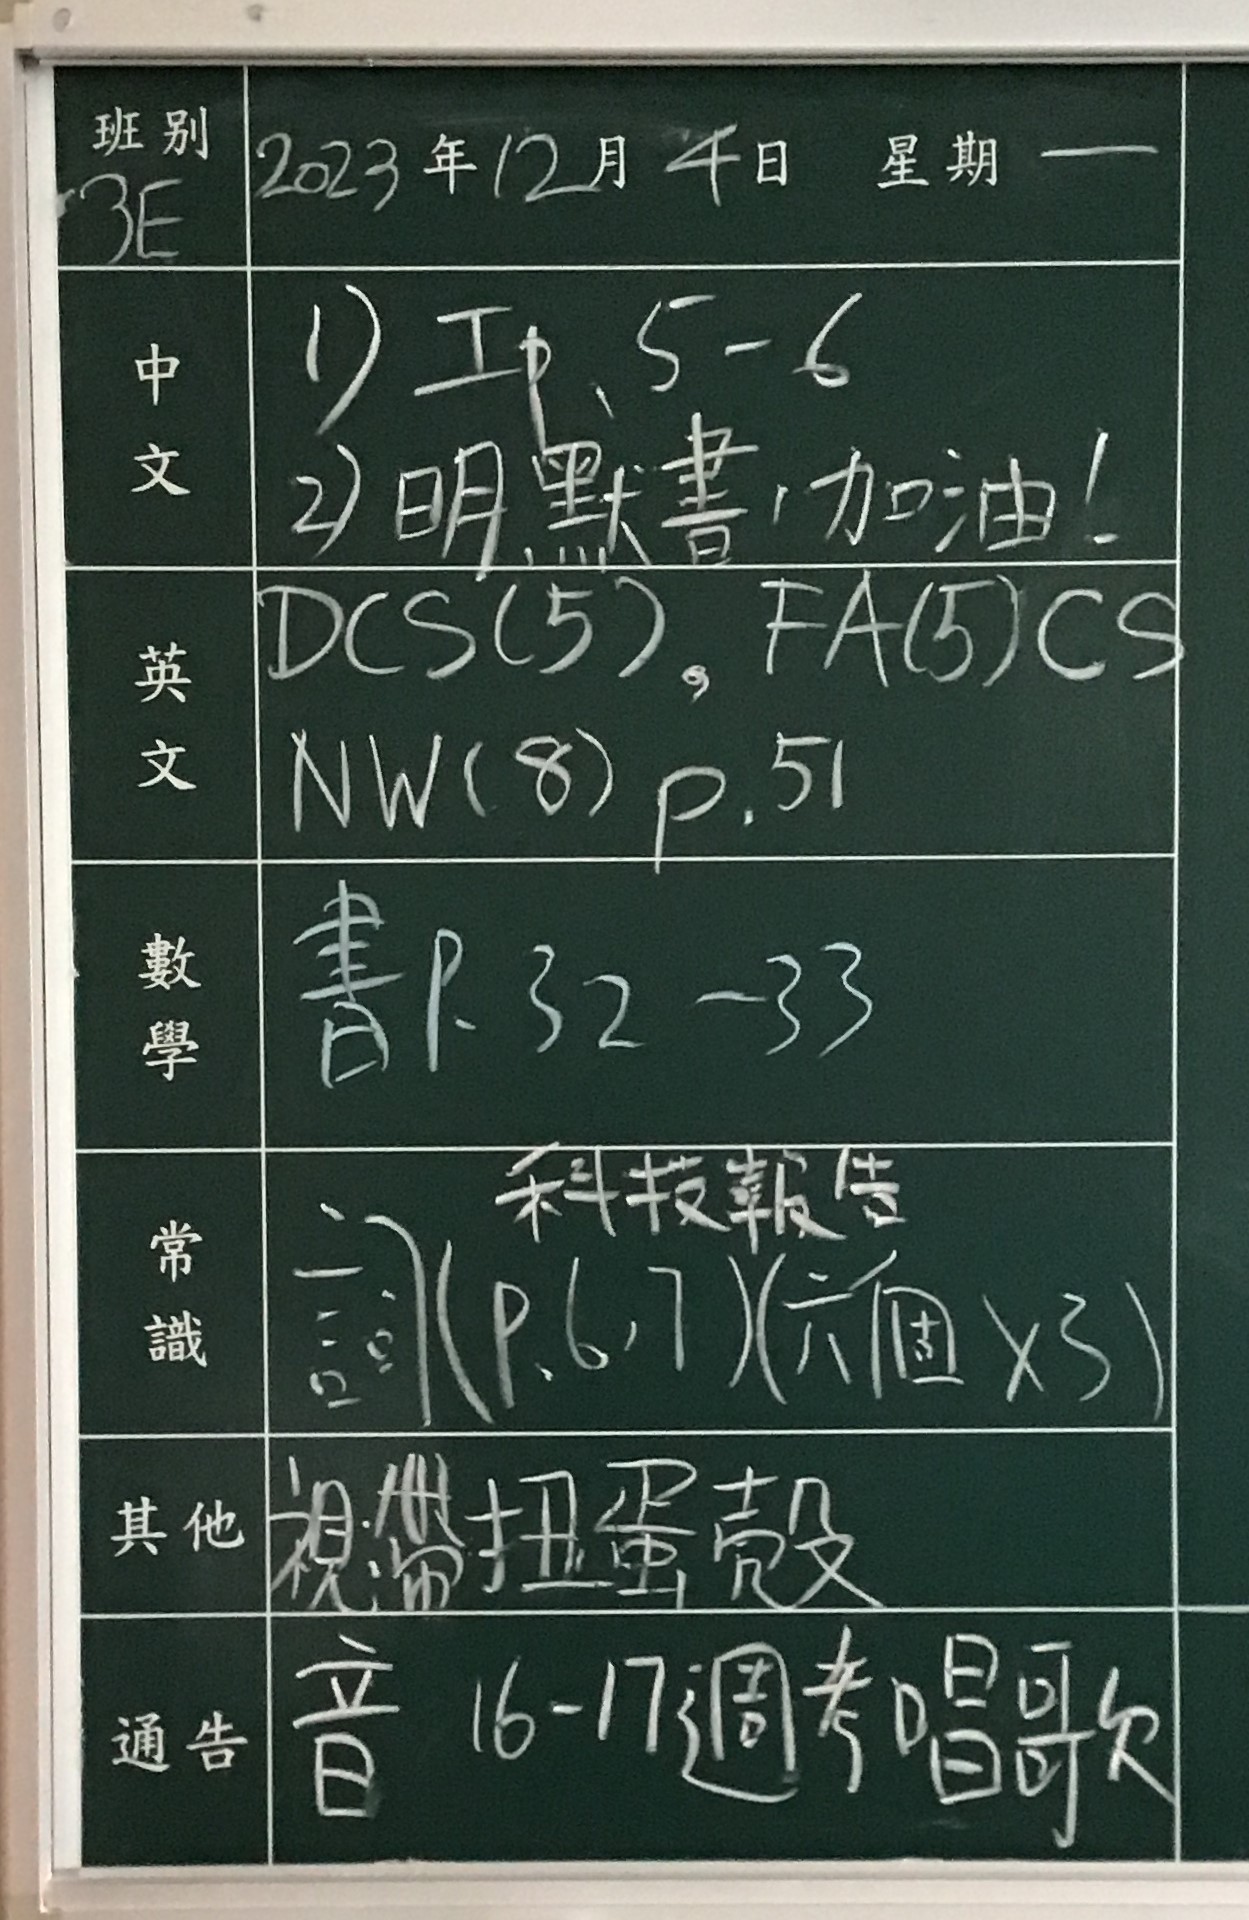 班別 2023年12月4日 星期一
3E
中文
1) 工p.5-6
2) 明默書,加油!
英文
DCS(5), FA(5)CS
NW(8) p.51
數學
書P.32-33
常識
科技報告
詞(P.6,7)(六個×3)
其他
視帶扭蛋殼
通告
音 16-17週考唱歌